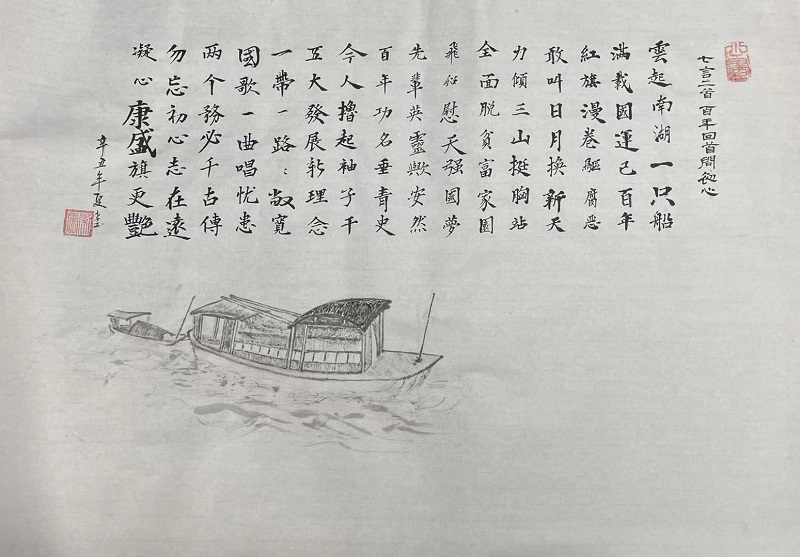 七言二首 百年回首問初心
雲起南湖一只船
滿載國運已百年
紅旗漫卷驅腐惡
敢叫日月換新天
力傾三山挺胸站
全面脫貧富家園
飛船慰天强國夢
先輩英靈歟安然
百年功名垂青史
今人擼起袖子干
五大發展新理念
一帶一路〻敞寬
國歌一曲唱忧患
两个務必千古傳
勿忘初心志在遠
凝心康盛旗更艷
辛丑年夏